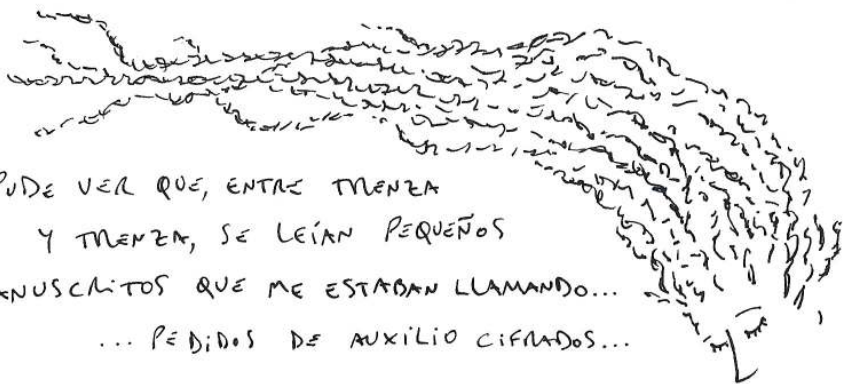 PUDE VER QUE, ENTRE TRENZA
Y TRENZA, SE LEÍAN PEQUEÑOS
ANUSCRITOS QUE ME ESTABAN LLAMANDO...
... PEDIDOS DE AUXILIO CIFRADOS...